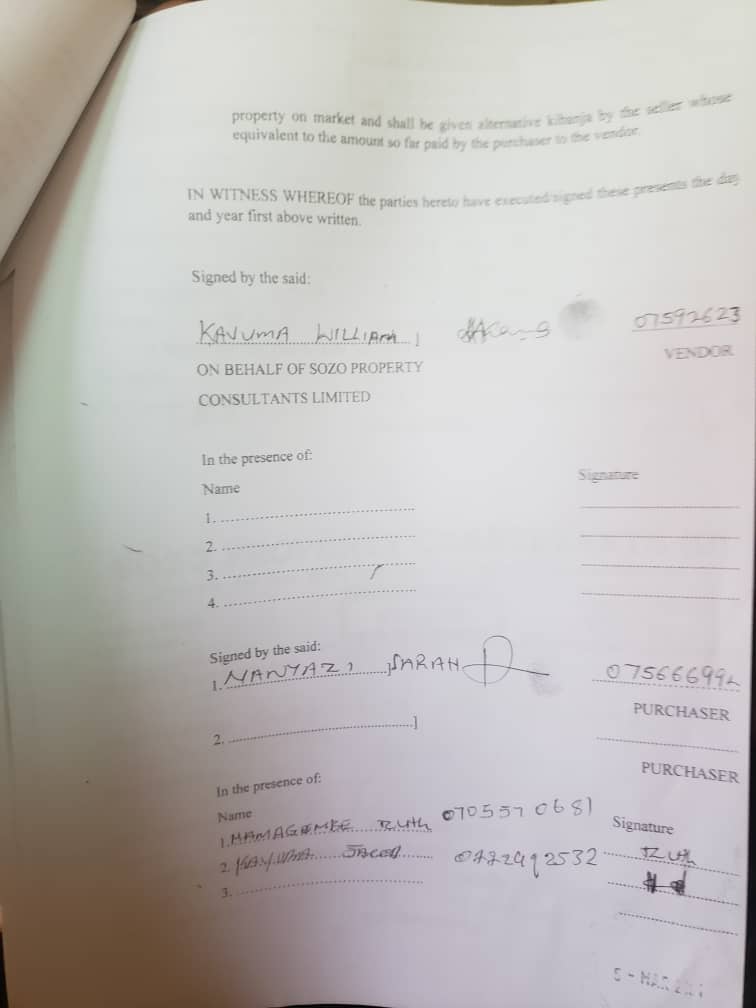 property on market and shall be given alternative kibanja by the seller whose
equivalent to the amount so far paid by the purchaser to the vendor.
IN WITNESS WHEREOF the parties hereto have executed/signed these presents the day
and year first above written.
Signed by the said:
KAVUMA WILLIAM ] 07592623
VENDOR
ON BEHALF OF SOZO PROPERTY
CONSULTANTS LIMITED
In the presence of:
Name Signature
1.
2.
3.
4.
Signed by the said:
1. NANYAZI ] SARAH 07566699
PURCHASER
2. ]
PURCHASER
In the presence of:
Name Signature
1. RUTH 0705570681 RUTH
2. JACOB
3.
5 - MAR